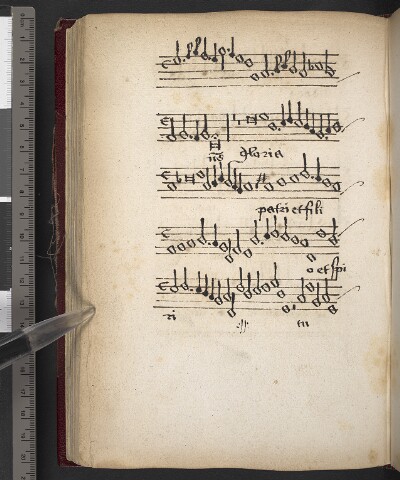 gloria
patri et fili
o et spi
ri
tu